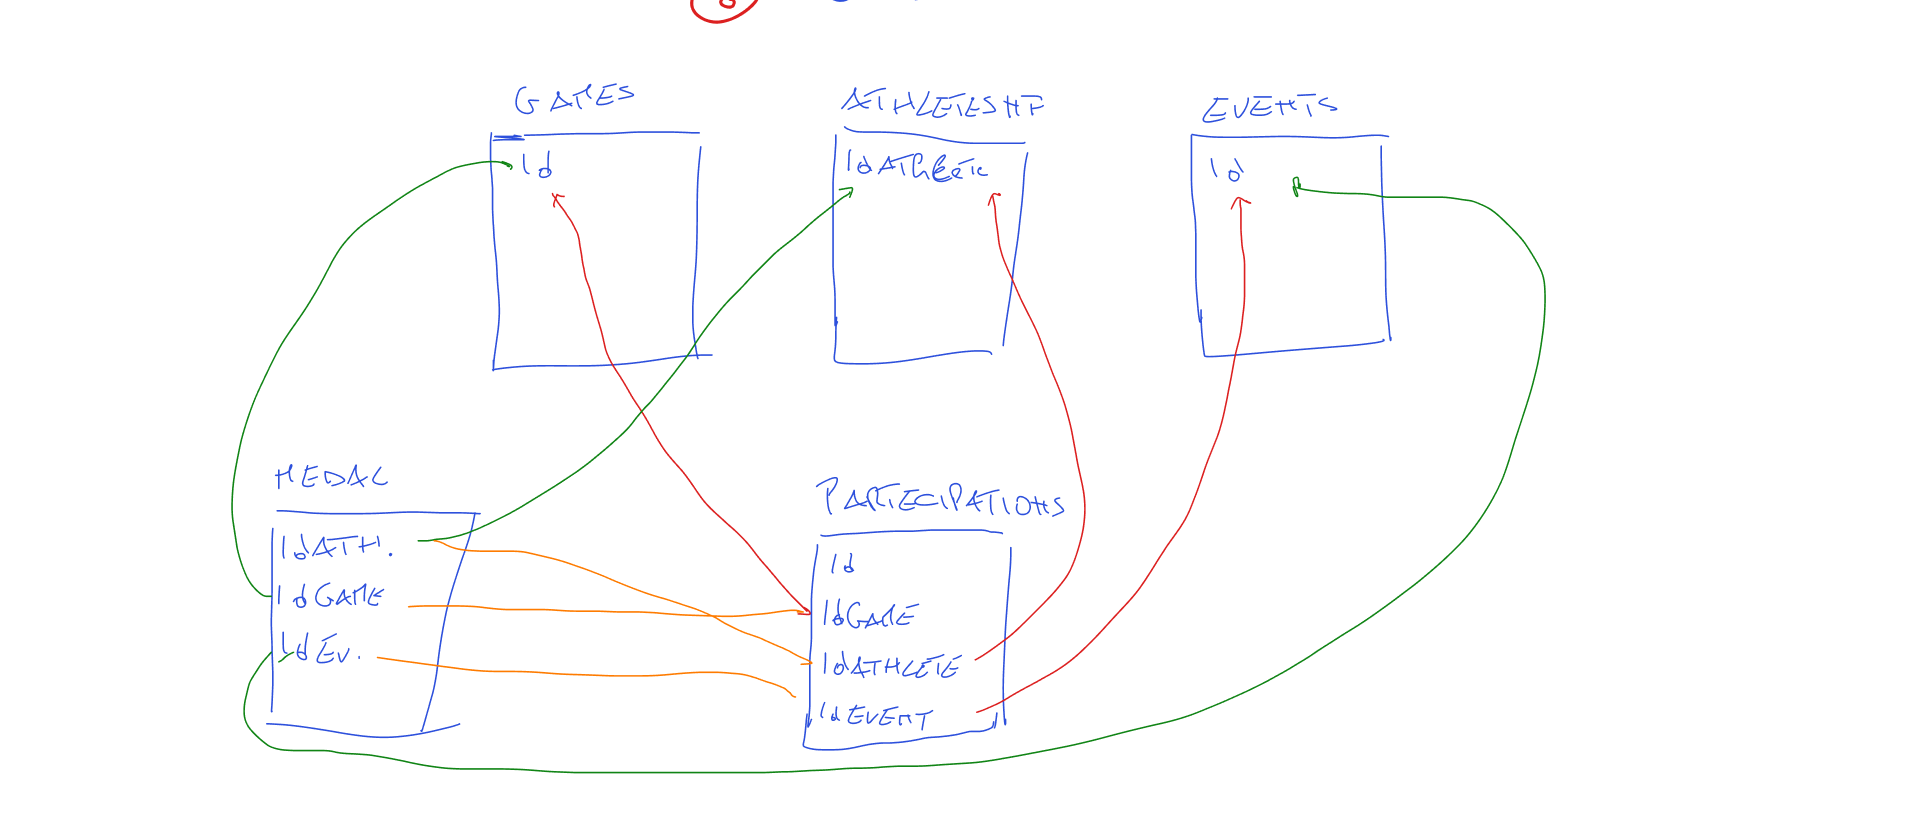 GAMES
Id
ATHLETESMF
IdAThlete
EVENTS
Id
MEDAL
IdATH.
IdGAME
IdEv.
PARTECIPATIONS
Id
IdGAME
IdATHLETE
IdEVENT